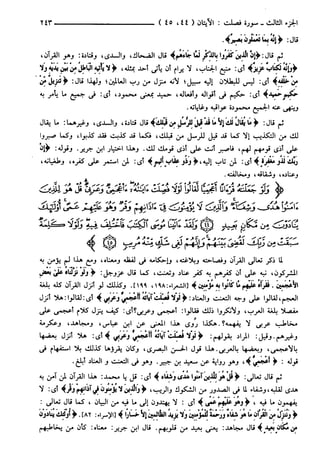 الجزء الثالث - سورة فصلت : الآيتان (٤٤، ٤٥) ٢٤٣
قال: ﴿إِنَّهُ بِمَا تَعْمَلُونَ بَصِيرٌ﴾.
ثم قال: ﴿إِنَّ الَّذِينَ كَفَرُوا بِالذِّكْرِ لَمَّا جَاءَهُمْ﴾ قال الضحاك، والسدي، وقتادة: وهو القرآن،
﴿وَإِنَّهُ لَكِتَابٌ عَزِيزٌ﴾ أي: منيع الجناب، لا يرام أن يأتي أحد بمثله، ﴿لَا يَأْتِيهِ الْبَاطِلُ مِنْ بَيْنِ يَدَيْهِ وَلَا
مِنْ خَلْفِهِ﴾ أي: ليس للبطلان إليه سبيل؛ لأنه منزل من رب العالمين؛ ولهذا قال: ﴿تَنزِيلٌ مِّنْ
حَكِيمٍ حَمِيدٍ﴾ أي: حكيم في أقواله وأفعاله، حميد بمعنى محمود، أي: في جميع ما يأمر به
وينهى عنه الجميع محمودة عواقبه وغاياته.
ثم قال: ﴿مَا يُقَالُ لَكَ إِلَّا مَا قَدْ قِيلَ لِلرُّسُلِ مِن قَبْلِكَ﴾ قال قتادة، والسدي، وغيرهما: ما يقال
لك من التكذيب إلا كما قد قيل للرسل من قبلك، فكما قد كذبت فقد كذبوا، وكما صبروا
على أذى قومهم لهم، فاصبر أنت على أذى قومك لك. وهذا اختيار ابن جرير. وقوله: ﴿إِنَّ
رَبَّكَ لَذُو مَغْفِرَةٍ﴾ أي: لمن تاب إليه، ﴿وَذُو عِقَابٍ أَلِيمٍ﴾ أي: لمن استمر على كفره، وطغيانه،
وعناده، وشقاقه، ومخالفته.
﴿وَلَوْ جَعَلْنَاهُ قُرْآنًا أَعْجَمِيًّا لَّقَالُوا لَوْلَا فُصِّلَتْ آيَاتُهُ أَأَعْجَمِيٌّ وَعَرَبِيٌّ قُلْ هُوَ لِلَّذِينَ
آمَنُوا هُدًى وَشِفَاءٌ وَالَّذِينَ لَا يُؤْمِنُونَ فِي آذَانِهِمْ وَقْرٌ وَهُوَ عَلَيْهِمْ عَمًى أُولَئِكَ
يُنَادَوْنَ مِن مَّكَانٍ بَعِيدٍ ٤٤ وَلَقَدْ آتَيْنَا مُوسَى الْكِتَابَ فَاخْتُلِفَ فِيهِ وَلَوْلَا كَلِمَةٌ
سَبَقَتْ مِن رَّبِّكَ لَقُضِيَ بَيْنَهُمْ وَإِنَّهُمْ لَفِي شَكٍّ مِّنْهُ مُرِيبٍ ٤٥﴾
لما ذكر تعالى القرآن وفصاحته وبلاغته، وإحكامه في لفظه ومعناه، ومع هذا لم يؤمن به
المشركون، نبه على أن كفرهم به كفر عناد وتعنت، كما قال عزوجل: ﴿وَلَوْ نَزَّلْنَاهُ عَلَى بَعْضِ
الْأَعْجَمِينَ. فَقَرَأَهُ عَلَيْهِم مَّا كَانُوا بِهِ مُؤْمِنِينَ﴾ [الشعراء: ١٩٨، ١٩٩]. وكذلك لو أنزل القرآن كله بلغة
العجم، لقالوا على وجه التعنت والعناد: ﴿لَوْلَا فُصِّلَتْ آيَاتُهُ أَأَعْجَمِيٌّ وَعَرَبِيٌّ﴾ أي: لقالوا: هلا أنزل
مفصلا بلغة العرب، ولأنكروا ذلك فقالوا: أعجمي وعربي؟ أي: كيف ينزل كلام أعجمي على
مخاطب عربي لا يفهمه؟. هكذا رُوي هذا المعنى عن ابن عباس، ومجاهد، وعكرمة
وغيرهم. وقيل: المراد بقولهم: ﴿لَوْلَا فُصِّلَتْ آيَاتُهُ أَأَعْجَمِيٌّ وَعَرَبِيٌّ﴾ أي: هلا أنزل بعضها
بالأعجمي، وبعضها بالعربي. هذا قول الحسن البصري، وكان يقرؤها كذلك بلا استفهام في
قوله : ﴿أَعْجَمِيٌّ﴾، وهو رواية عن سعيد بن جبير، وهو في التعنت و العناد أبلغ.
ثم قال تعالى: ﴿قُلْ هُوَ لِلَّذِينَ آمَنُوا هُدًى وَشِفَاءٌ﴾ أي: قل يا محمد: هذا القرآن لمن آمن به
هدى لقلبه، وشفاء لما في الصدور من الشكوك والريب، ﴿وَالَّذِينَ لَا يُؤْمِنُونَ فِي آذَانِهِمْ وَقْرٌ﴾ أي: لا
يفهمون ما فيه ، ﴿وَهُوَ عَلَيْهِمْ عَمًى﴾ أي : لا يهتدون إلى ما فيه من البيان ، كما قال تعالى :
﴿وَنُنَزِّلُ مِنَ الْقُرْآنِ مَا هُوَ شِفَاءٌ وَرَحْمَةٌ لِّلْمُؤْمِنِينَ وَلَا يَزِيدُ الظَّالِمِينَ إِلَّا خَسَارًا﴾ [الإسراء: ٨٢]. ﴿أُولَئِكَ يُنَادَوْنَ
مِن مَّكَانٍ بَعِيدٍ﴾ قال مجاهد: يعني بعيد من قلوبهم. قال ابن جرير: معناه: كأن من يخاطبهم